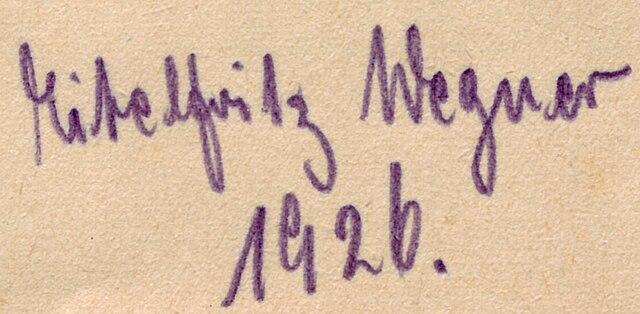 Eitelfritz Wegner
1926.